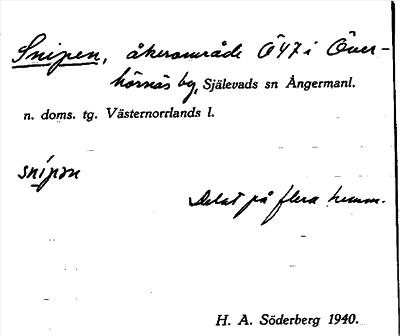 Snipen, åkerområde Ö47 i Över-
hörnäs by, Själevads sn Ångermanl.
n. doms. tg. Västernorrlands l.
snipen
Delat på flera hemm.
H. A. Söderberg 1940.